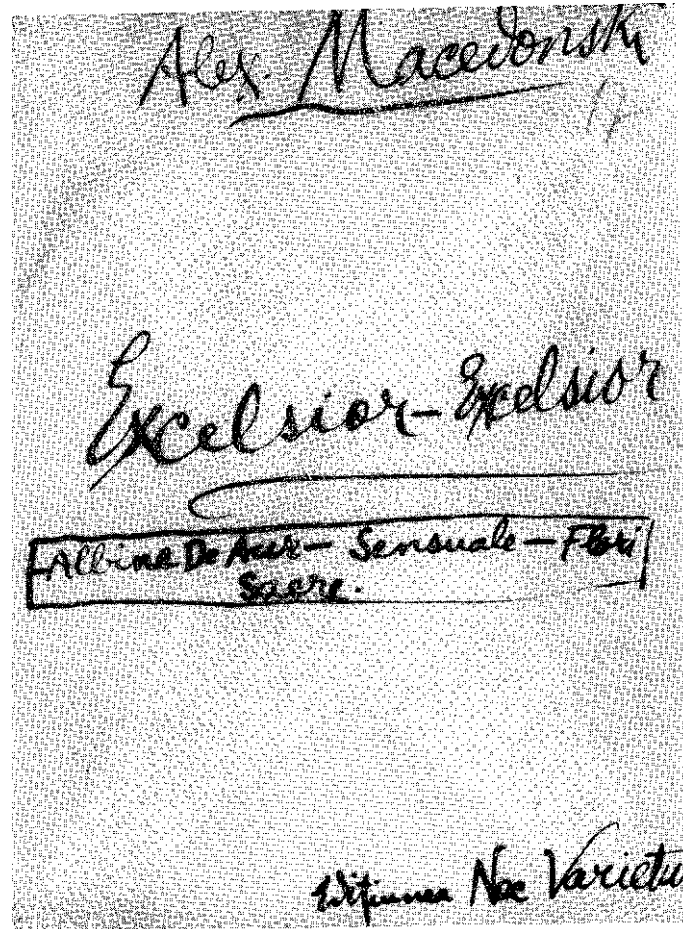 Alex. Macedonski
Excelsior - Excelsior
Albine De Aur - Sensuale - Flori
Sacre.
Edițiunea Nec Varietur